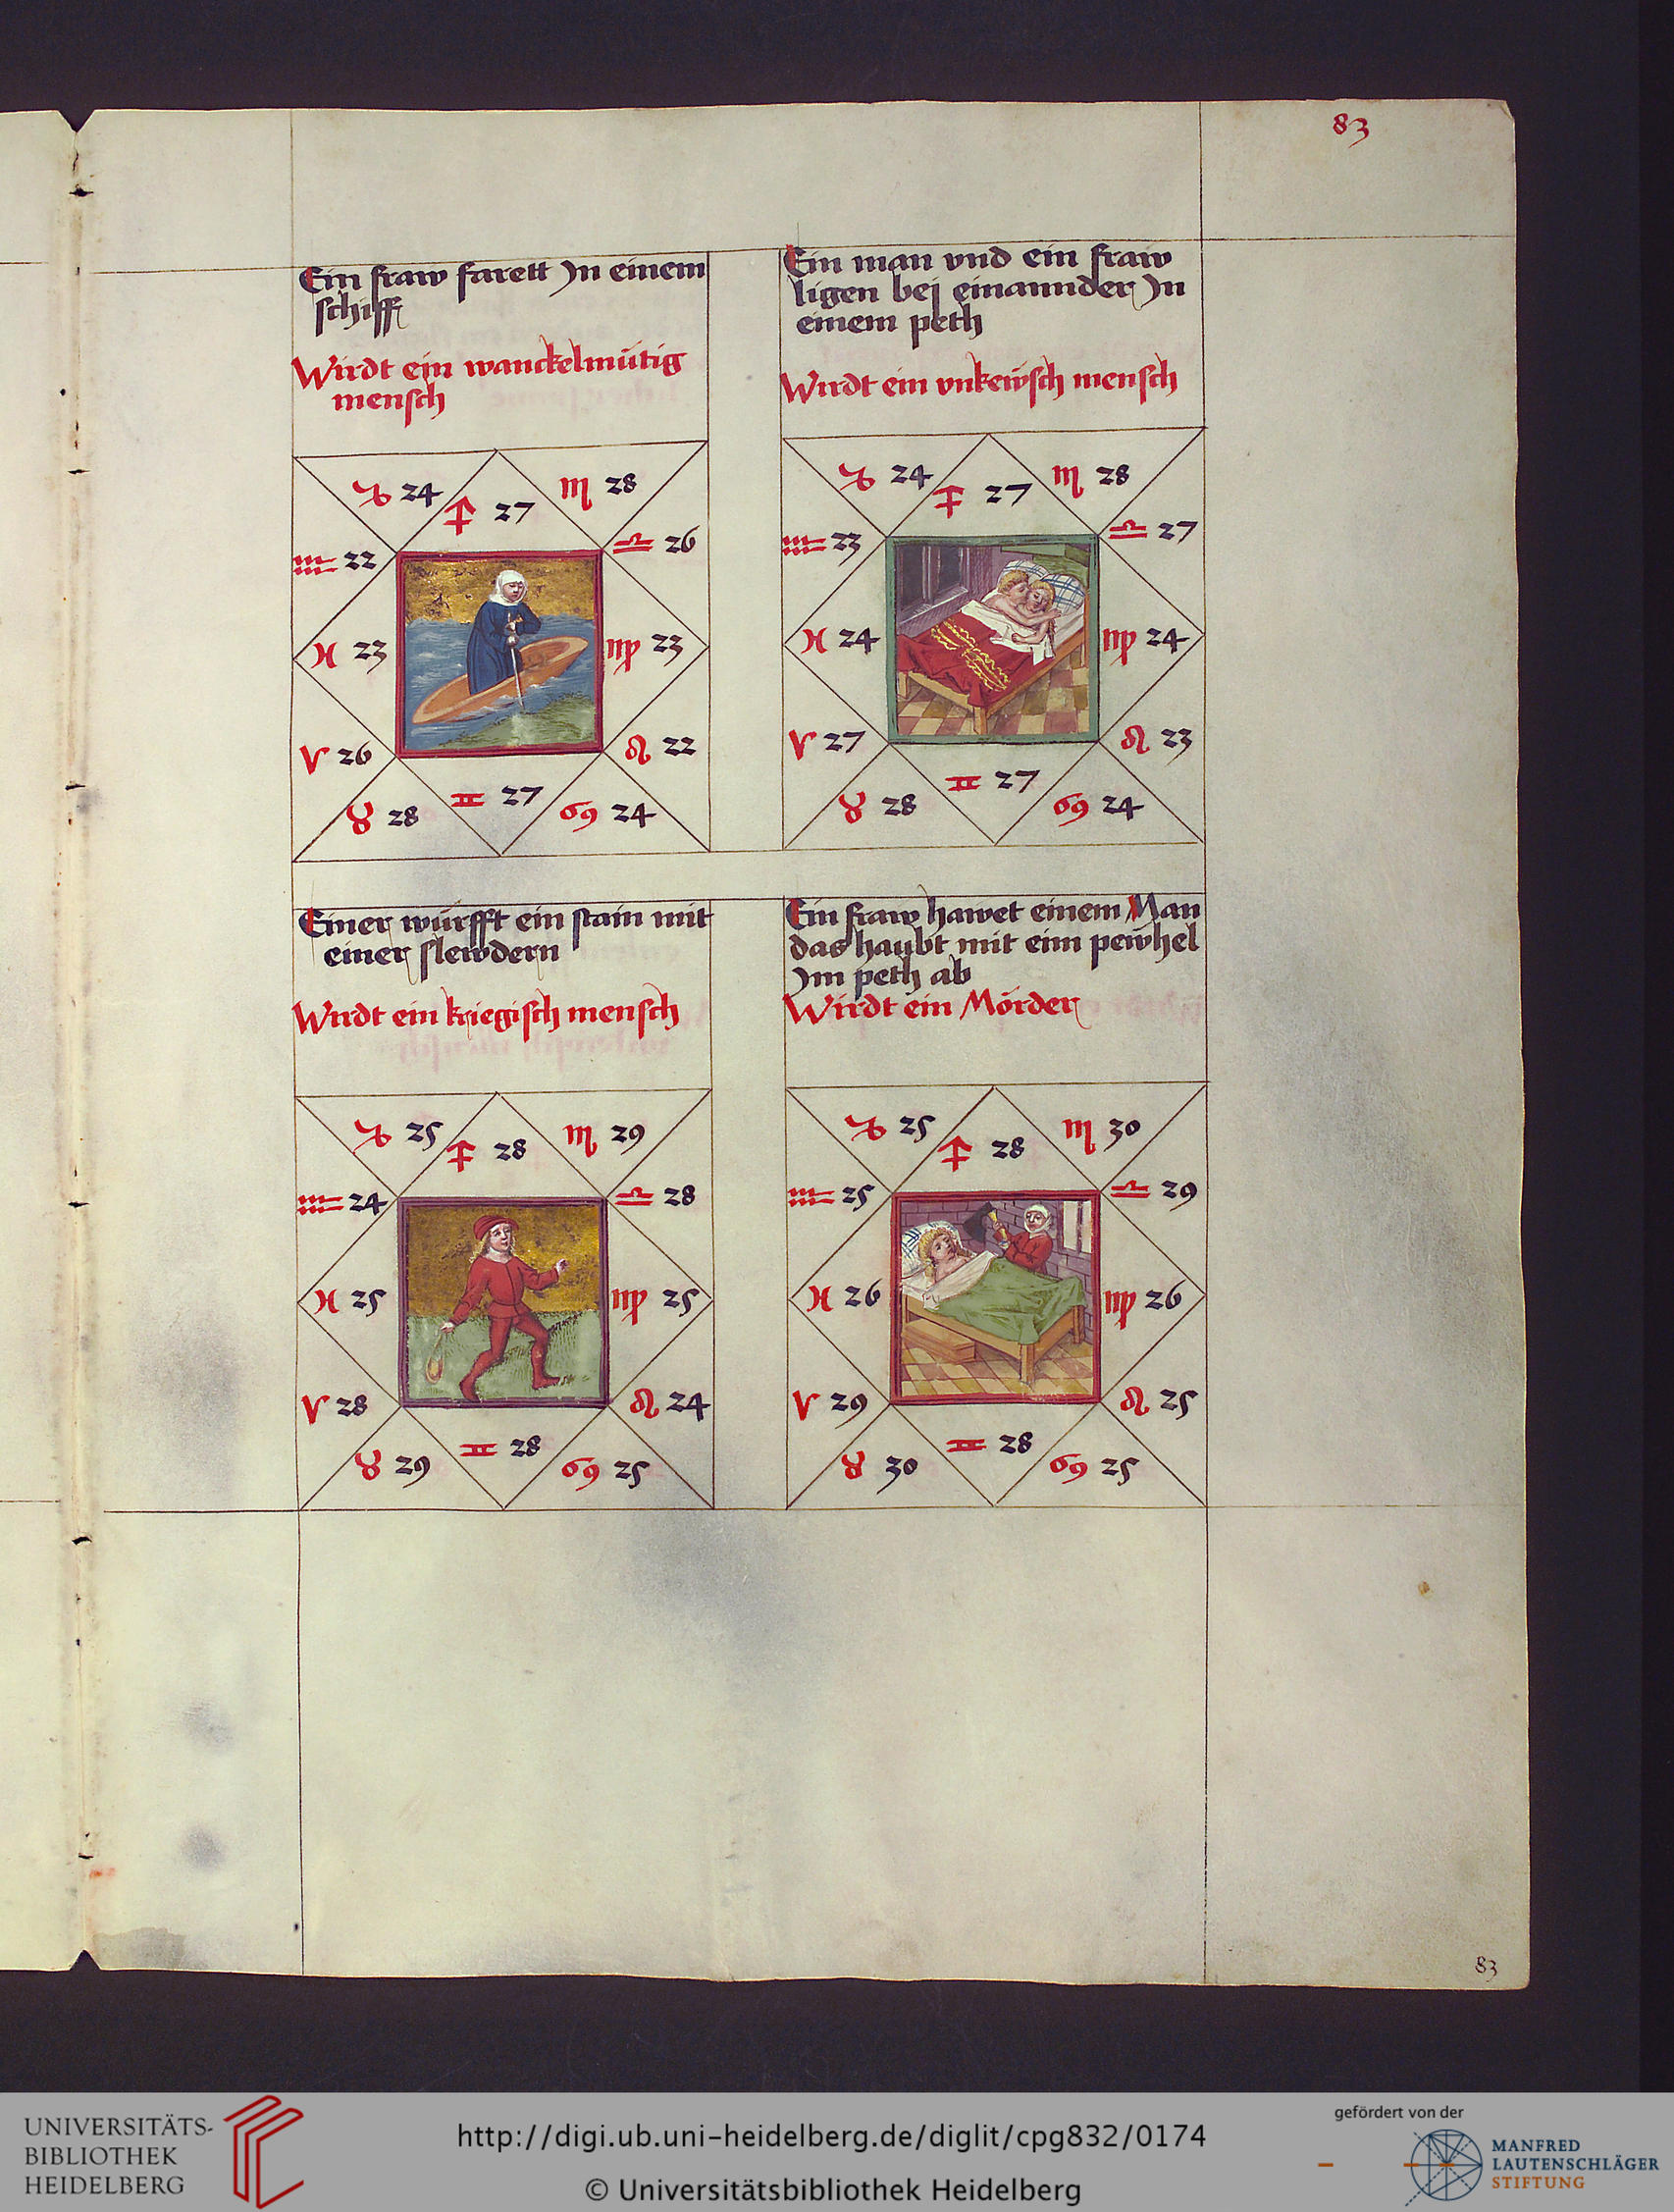 83
Ein fraw farett Jn einem
schiff
Wirdt ein wanckelmütig
mensch
♑ 24
♐ 27
♏ 28
♒ 22
♎ 26
♓ 23
♍ 23
♈ 26
♌ 22
♉ 28
♊ 27
♋ 24
Ein man vnd ein fraw
ligen bej einannder Jn
einem peth
Wirdt ein vnkewsch mensch
♑ 24
♐ 27
♏ 28
♒ 23
♎ 27
♓ 24
♍ 24
♈ 27
♌ 23
♉ 28
♊ 27
♋ 24
Einer würfft ein stain mit
einer slewdern
Wirdt ein kriegisch mensch
♑ 25
♐ 28
♏ 29
♒ 24
♎ 28
♓ 25
♍ 25
♈ 28
♌ 24
♉ 29
♊ 28
♋ 25
Ein fraw hawet einem Man
das haubt mit eim pewhel
Jm peth ab
Wirdt ein Mörder
♑ 25
♐ 28
♏ 30
♒ 25
♎ 29
♓ 26
♍ 26
♈ 29
♌ 25
♉ 30
♊ 28
♋ 25
83
UNIVERSITÄTS-
BIBLIOTHEK
HEIDELBERG
http://digi.ub.uni-heidelberg.de/diglit/cpg832/0174
© Universitätsbibliothek Heidelberg
gefördert von der
MANFRED
LAUTENSCHLÄGER
STIFTUNG